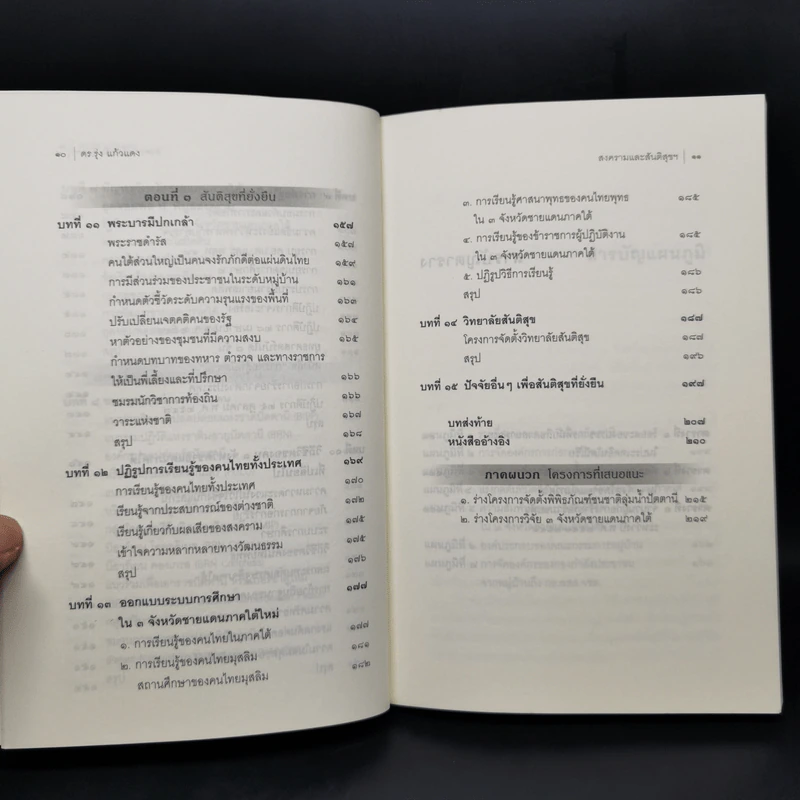 ๑๐ | ดร.รุ่ง แก้วแดง
ตอนที่ ๓ สันติสุขที่ยั่งยืน
บทที่ ๑๑ พระบารมีปกเกล้า ๑๕๗
พระราชดำรัส ๑๕๗
คนใต้ส่วนใหญ่เป็นคนจงรักภักดีต่อแผ่นดินไทย ๑๕๙
การมีส่วนร่วมของประชาชนในระดับหมู่บ้าน ๑๖๑
กำหนดตัวชี้วัดระดับความรุนแรงของพื้นที่ ๑๖๓
ปรับเปลี่ยนเจตคติคนของรัฐ ๑๖๔
หาตัวอย่างของชุมชนที่มีความสงบ ๑๖๕
กำหนดบทบาทของทหาร ตำรวจ และทางราชการ
ให้เป็นพี่เลี้ยงและที่ปรึกษา ๑๖๖
ชมรมนักวิชาการท้องถิ่น ๑๖๖
วาระแห่งชาติ ๑๖๗
สรุป ๑๖๘
บทที่ ๑๒ ปฏิรูปการเรียนรู้ของคนไทยทั้งประเทศ ๑๖๙
การเรียนรู้ของคนไทยทั้งประเทศ ๑๗๐
เรียนรู้จากประสบการณ์ของต่างชาติ ๑๗๑
เรียนรู้เกี่ยวกับผลเสียของสงคราม ๑๗๕
เข้าใจความหลากหลายทางวัฒนธรรม ๑๗๕
สรุป ๑๗๖
บทที่ ๑๓ ออกแบบระบบการศึกษา ๑๗๗
ใน ๓ จังหวัดชายแดนภาคใต้ใหม่
๑. การเรียนรู้ของคนไทยในภาคใต้ ๑๗๗
๒. การเรียนรู้ของคนไทยมุสลิม ๑๘๑
สถานศึกษาของคนไทยมุสลิม ๑๘๒
สงครามและสันติสุขฯ | ๑๑
๓. การเรียนรู้ศาสนาพุทธของคนไทยพุทธ ๑๘๕
ใน ๓ จังหวัดชายแดนภาคใต้
๔. การเรียนรู้ของข้าราชการผู้ปฏิบัติงาน ๑๘๕
ใน ๓ จังหวัดชายแดนภาคใต้
๕. ปฏิรูปวิธีการเรียนรู้ ๑๘๖
สรุป ๑๘๖
บทที่ ๑๔ วิทยาลัยสันติสุข ๑๘๗
โครงการจัดตั้งวิทยาลัยสันติสุข ๑๘๗
สรุป ๑๙๖
บทที่ ๑๕ ปัจจัยอื่นๆ เพื่อสันติสุขที่ยั่งยืน ๑๙๗
บทส่งท้าย ๒๐๗
หนังสืออ้างอิง ๒๑๐
ภาคผนวก โครงการที่เสนอแนะ
๑. ร่างโครงการจัดตั้งพิพิธภัณฑ์ชนชาติลุ่มน้ำปัตตานี ๒๑๕
๒. ร่างโครงการวิจัย ๓ จังหวัดชายแดนภาคใต้ ๒๑๙